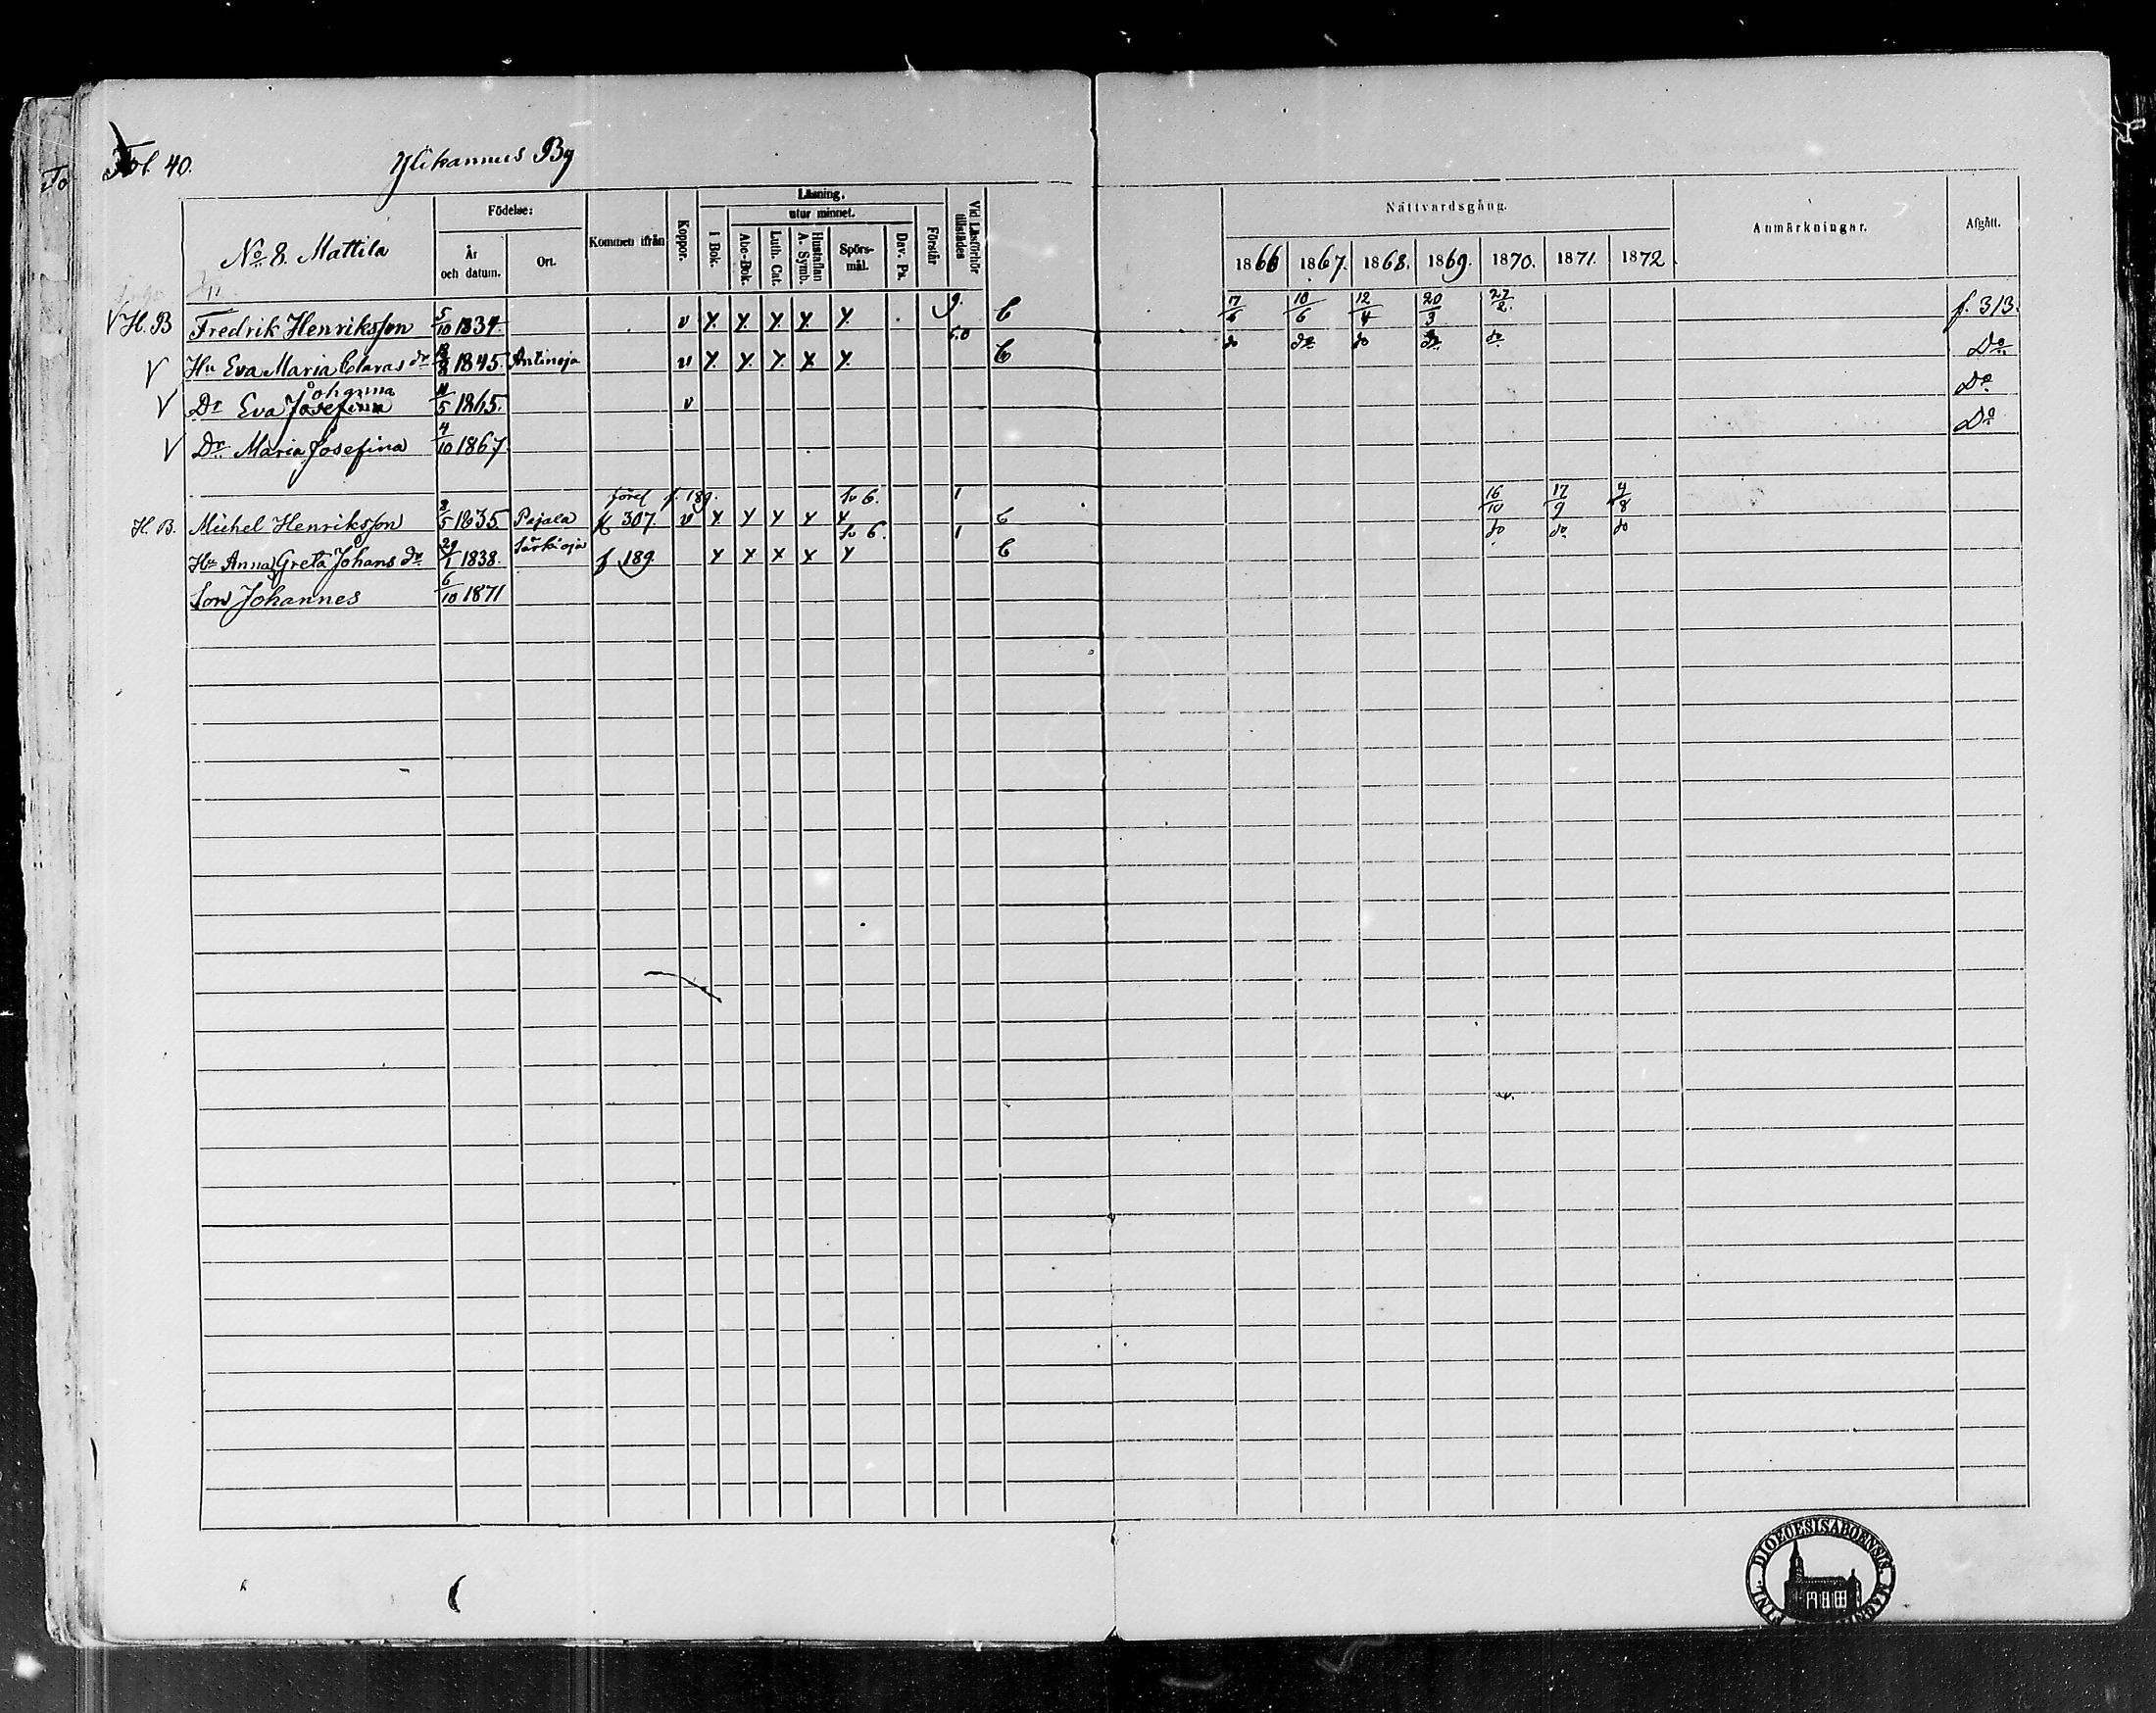 Fol. 40.
Ylikannus By
No 8. Mattila
Födelse:
År och datum.
Ort.
Kommen ifrån
Koppor.
Läsning.
utur minnet.
I Bok.
Abc-Bok.
Luth. Cat.
Hustaflan A. Symb.
Spörs-mål.
Dav. Ps.
Förstår
Vid Läsförhör tillstädes
Nattvardsgång.
1866 1867. 1868. 1869. 1870. 1871. 1872.
Anmärkningar.
Afgått.
V H. B Fredrik Henriksson 5/10 1834. v x x x x x 9. C 17/6 10/6 12/4 20/3 27/2. f. 313.
V Hu Eva Maria Claras dr 1845. Antinoja v x x x x x 6.0 do do do do do Do
Johanna
V Dr Eva Josefina 11/5 1865. v Do
V Dr Maria Josefina 4/10 1867. Do
f. 189. 6. 1
H. B. Michel Henriksson 8/5 1835 Pajala 307. v x x x x x C 16/10 17/9 4/8
6. 1
Hu Anna Greta Johans dr 29/1 1838. Särkioja f 189. x x x x x C do do do
Son Johannes 6/10 1871
FINL. DIOECESIS ABOENSIS MAGNI